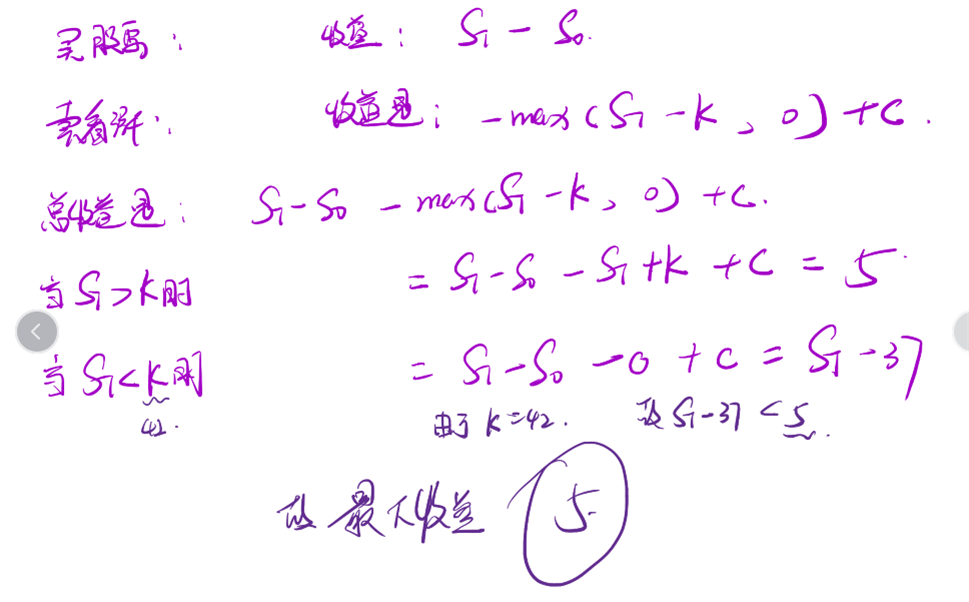 买股票: 收益: S₁ - S₀.
卖看涨: 收益是: -max(S₁ - K, 0) + C.
总收益是: S₁ - S₀ - max(S₁ - K, 0) + C.
当 S₁ > K 时 = S₁ - S₀ - S₁ + K + C = 5
当 S₁ < K 时 = S₁ - S₀ - 0 + C = S₁ - 37
42. 由于 K = 42. 故 S₁ - 37 < 5.
故 最大收益 5.